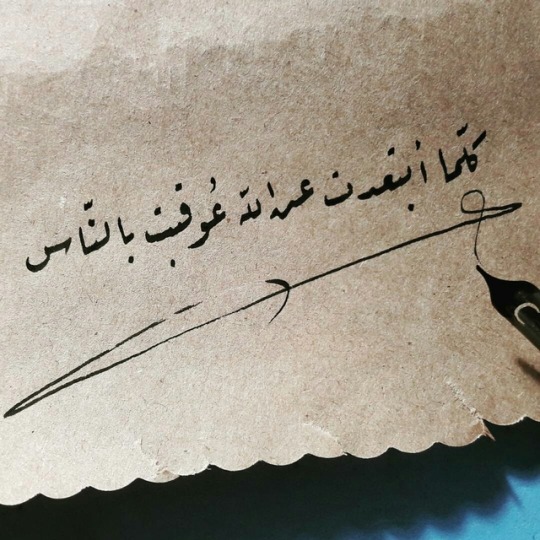 كلّما أبتعدت عن الله عُوقبت بالنّاس